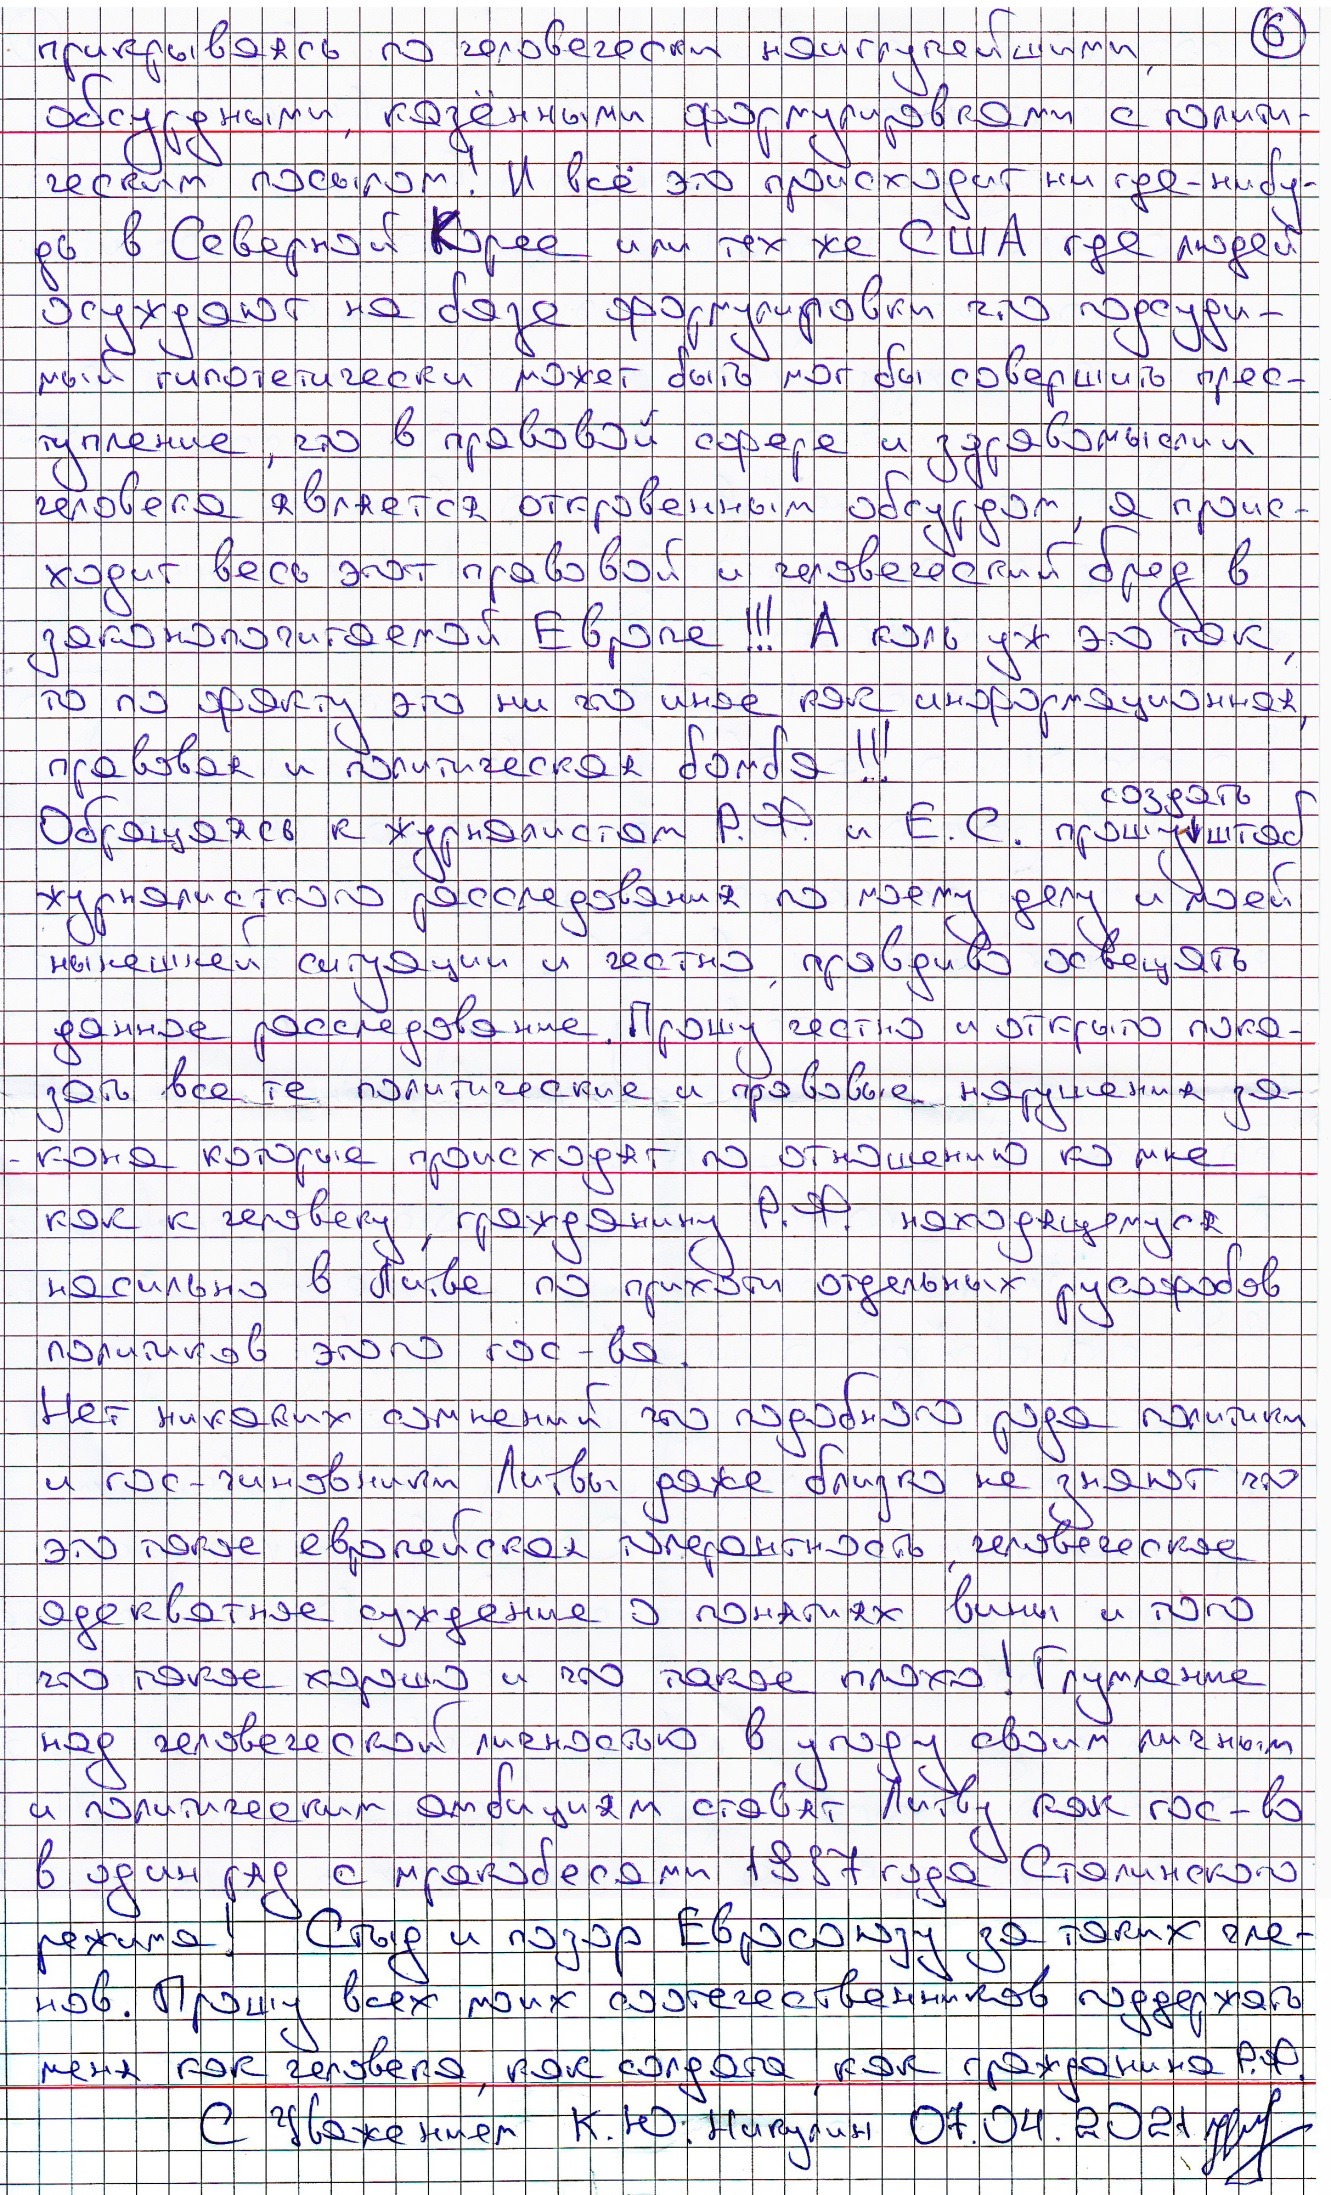 6
прикрываясь по человечески наиглупейшими,
абсурдными, казёнными формулировками с полити-
ческим посылом! И всё это происходит ни где-нибу-
дь в Северной Корее или тех же США где людей
осуждают на базе формулировки что подсуди-
мый гипотетически может быть мог бы совершить прес-
тупление, что в правовой сфере и здравомыслии
человека является откровенным абсурдом, а проис-
ходит весь этот правовой и человеческий бред в
законопочитаемой Европе!!! А коль уж это так,
то по факту это ни что иное как информационная,
правовая и политическая бомба!!!
Обращаясь к журналистам Р.Ф. и Е.С. прошу создать штаб
журналисткого расследования по моему делу и моей
нынешней ситуации и честно, правдиво освещать
данное расследование. Прошу честно и открыто пока-
зать все те политические и правовые нарушения за-
кона которые происходят по отношению ко мне
как к человеку, гражданину Р.Ф. находящемуся
насильно в Литве по прихоти отдельных русофобов
политиков этого гос-ва.
Нет никаких сомнений что подобного рода политики
и гос-чиновники Литвы даже близко не знают что
это такое европейская толерантность, человеческое
адекватное суждение о понятиях вины и того
что такое хорошо и что такое плохо! Глумление
над человеческой личностью в угоду своим личным
и политическим амбициям ставят Литву как гос-во
в один ряд с мракобесами 1937 года Сталинского
режима! Стыд и позор Евросоюзу за таких чле-
нов. Прошу всех моих соотечественников поддержать
меня как человека, как солдата, как гражданина Р.Ф.
С Уважением К.Ю. Никулин 07.04.2021